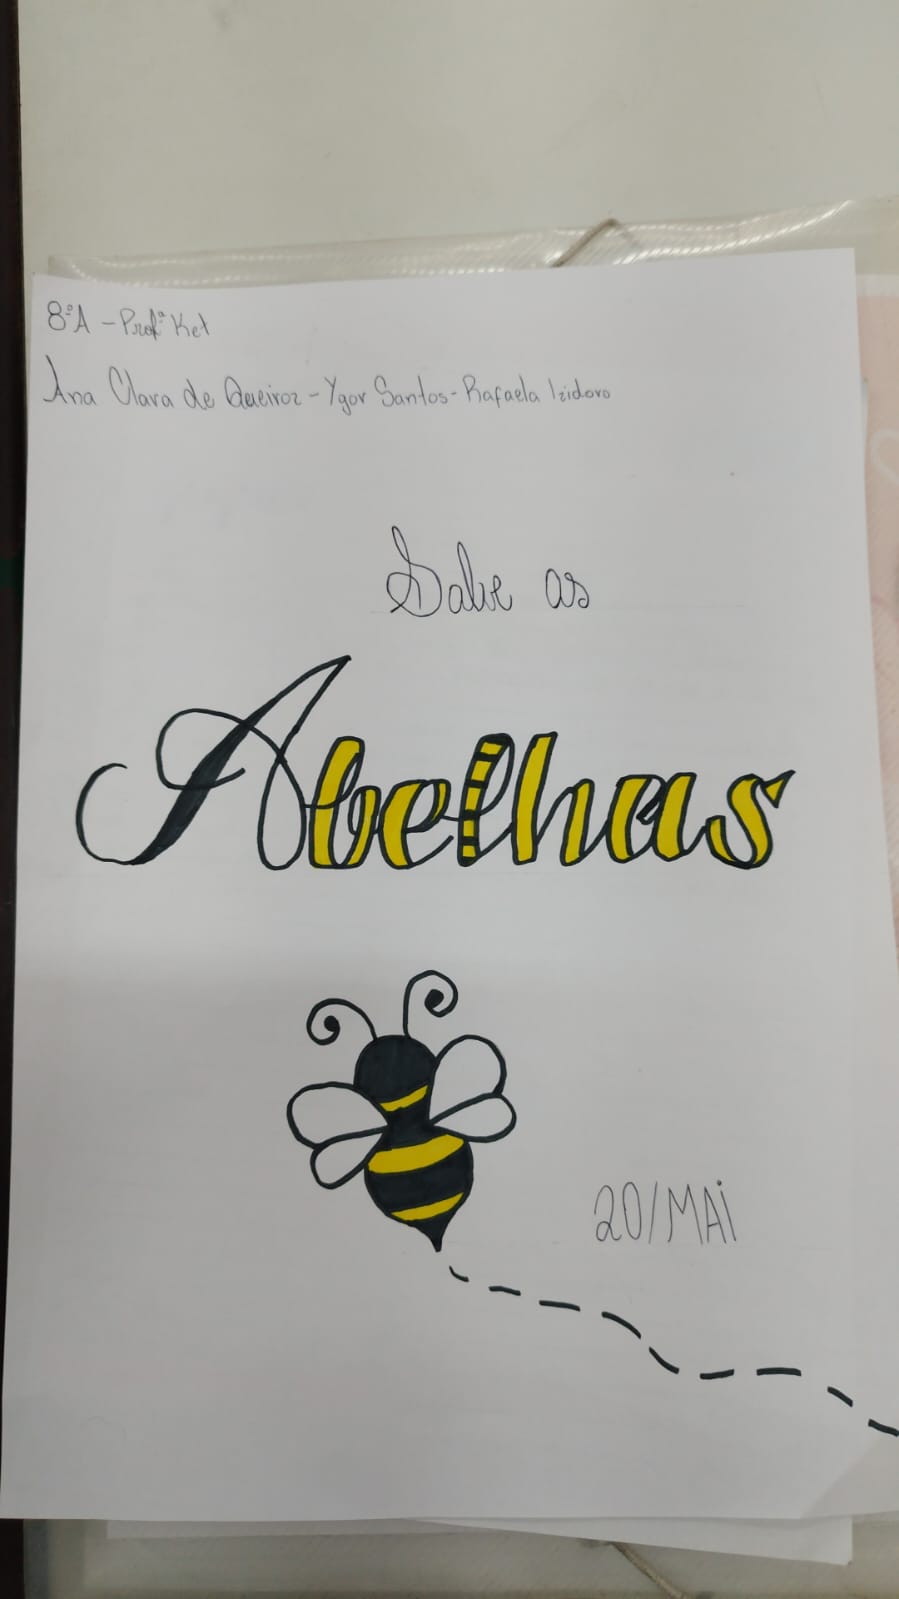 8ºA - Profª Ket
Ana Clara de Queiroz - Ygor Santos - Rafaela Izidoro
Salve as
Abelhas
20/MAi